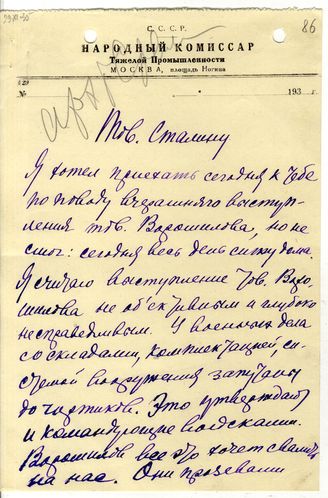 29/XI-35
86
С. С. С. Р.
НАРОДНЫЙ КОМИССАР
Тяжелой Промышленности
МОСКВА, площадь Ногина
193 г.
Тов. Сталину
Я хотел приехать сегодня к тебе
по поводу вчерашнего выступ-
ления тов. Ворошилова, но не
смог: сегодня весь день сижу дома.
Я считаю выступление тов. Воро-
шилова не об'ективным и глубоко
несправедливым. У военных дела
со складами, комплектацией, си-
стемой вооружения запутаны
до чортиков. Это утверждают
и командующие войсками.
Ворошилов все это хочет свалить
на нас. Они прозевали